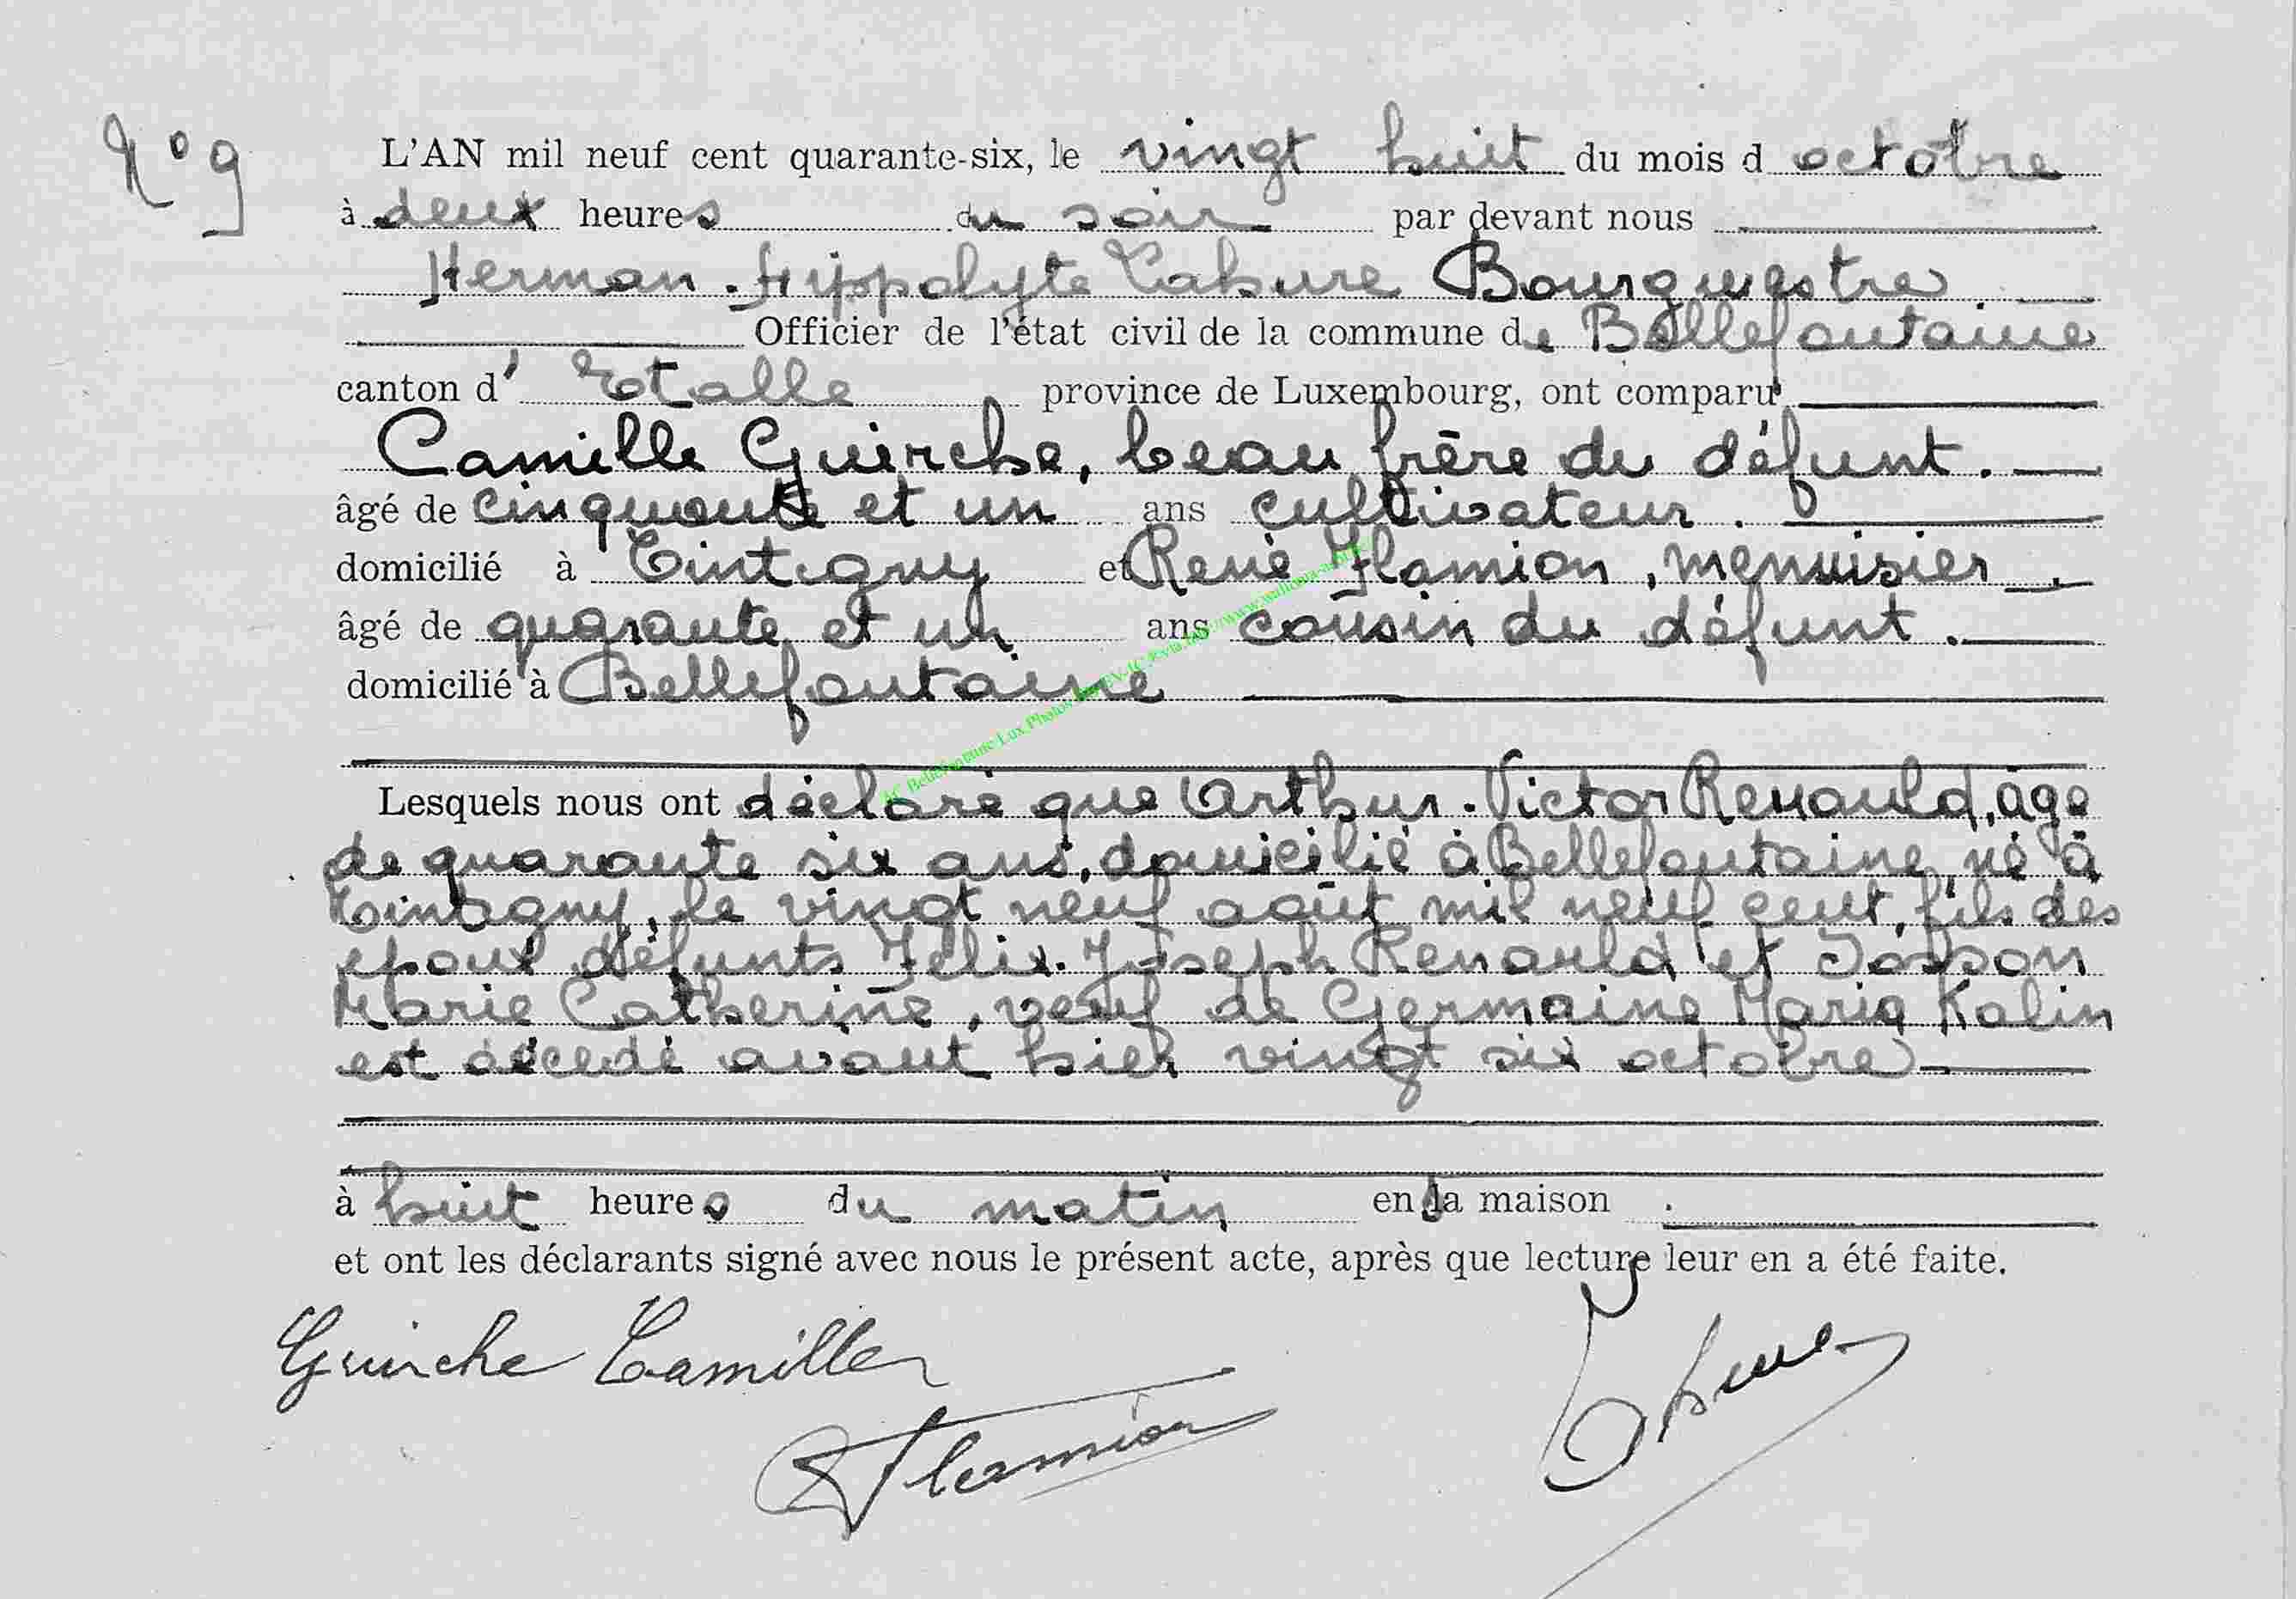 N° 9
L'AN mil neuf cent quarante-six, le vingt huit du mois d octobre
à deux heures du soir par devant nous
Herman-Hippolyte Lahure Bourgmestre.
Officier de l'état civil de la commune de Bellefontaine
canton d' Etalle province de Luxembourg, ont comparu
Camille Guirche, beau frère du défunt.
âgé de cinquante et un ans cultivateur.
domicilié à Tintigny et René Flamion, menuisier.
âgé de quarante et un ans cousin du défunt.
domicilié à Bellefontaine
Lesquels nous ont déclaré que Arthur-Victor Renauld, âgé
de quarante six ans, domicilié à Bellefontaine, né à
Tintigny, le vingt neuf août mil neuf cent, fils des
époux défunts Félix-Joseph Renauld et Josson
Marie Catherine, veuf de Germaine Maria Kalin
est décédé avant hier vingt six octobre
à huit heures du matin en sa maison.
et ont les déclarants signé avec nous le présent acte, après que lecture leur en a été faite.
Guirche Camille
R Flamion